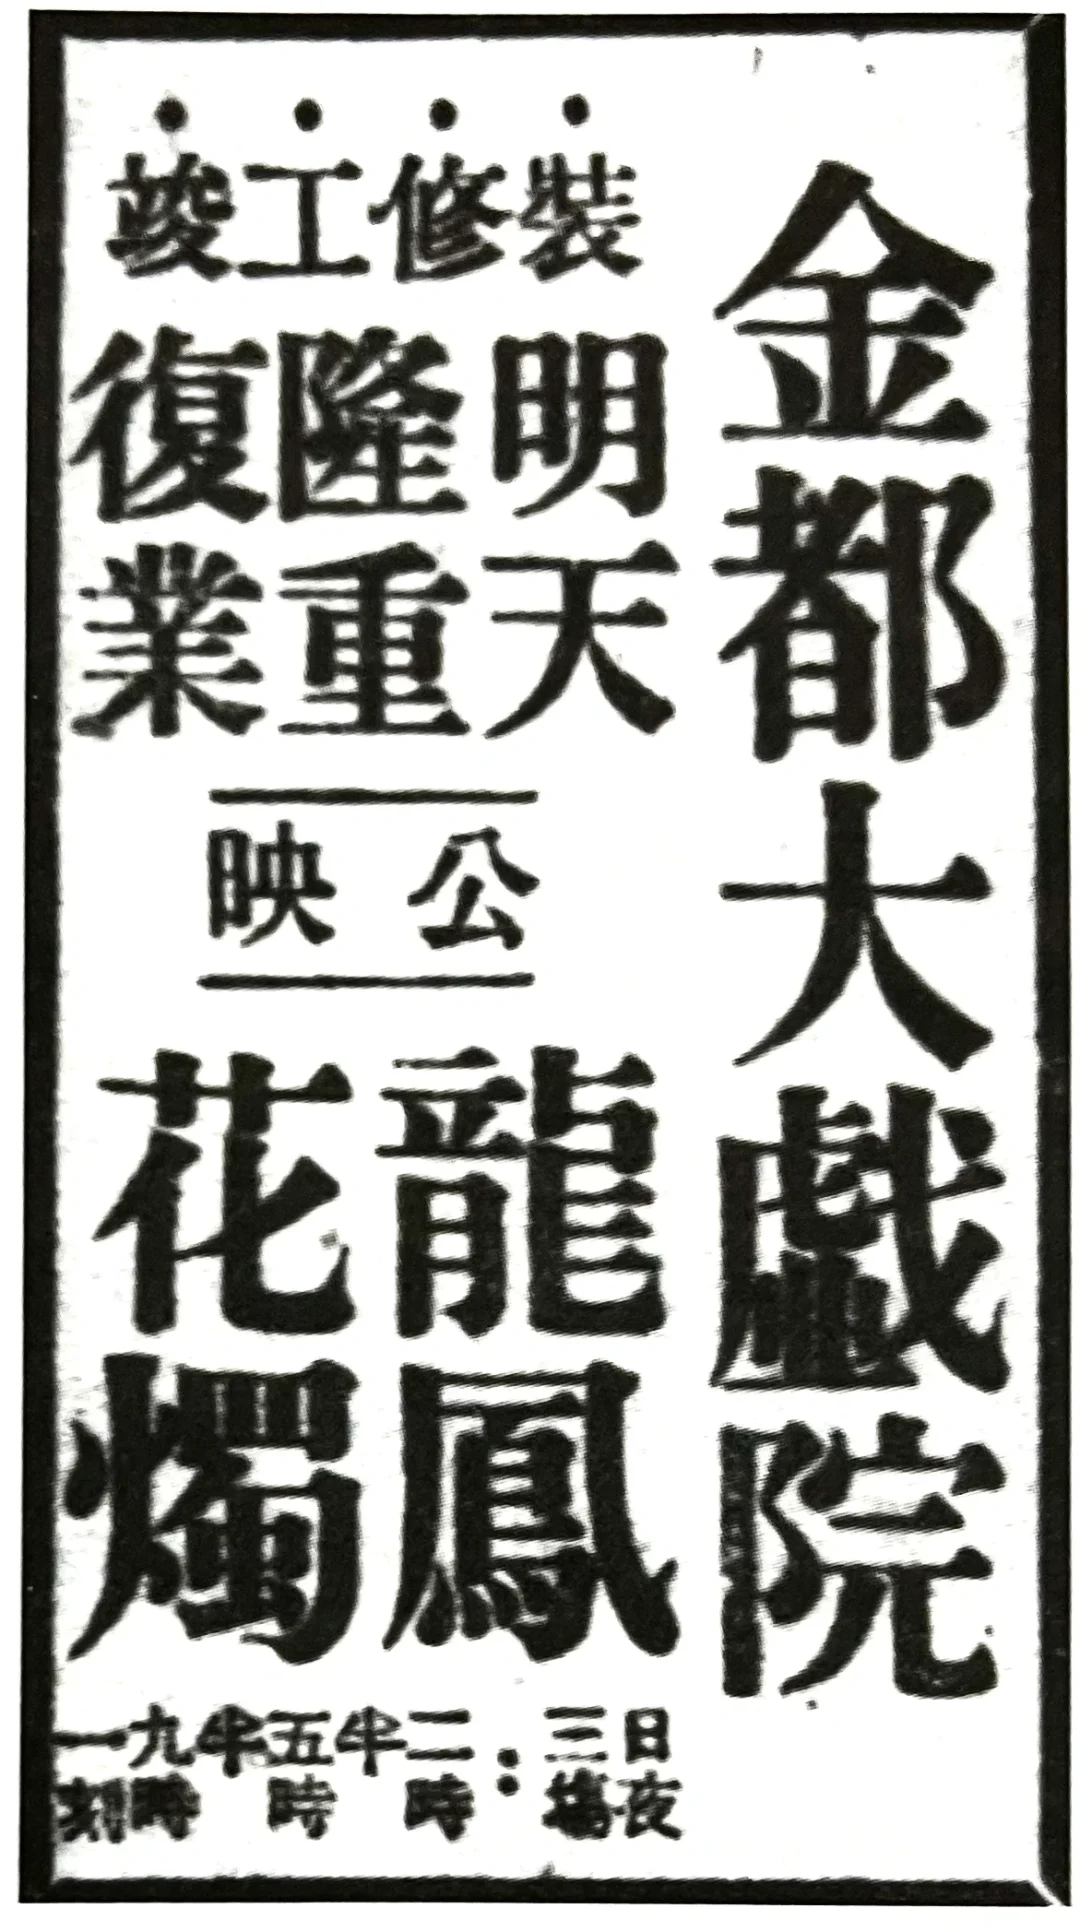 金都大戲院
裝修工竣
明天隆重復業
公映
龍鳳花燭
日夜三場：二時半五時半九時一刻